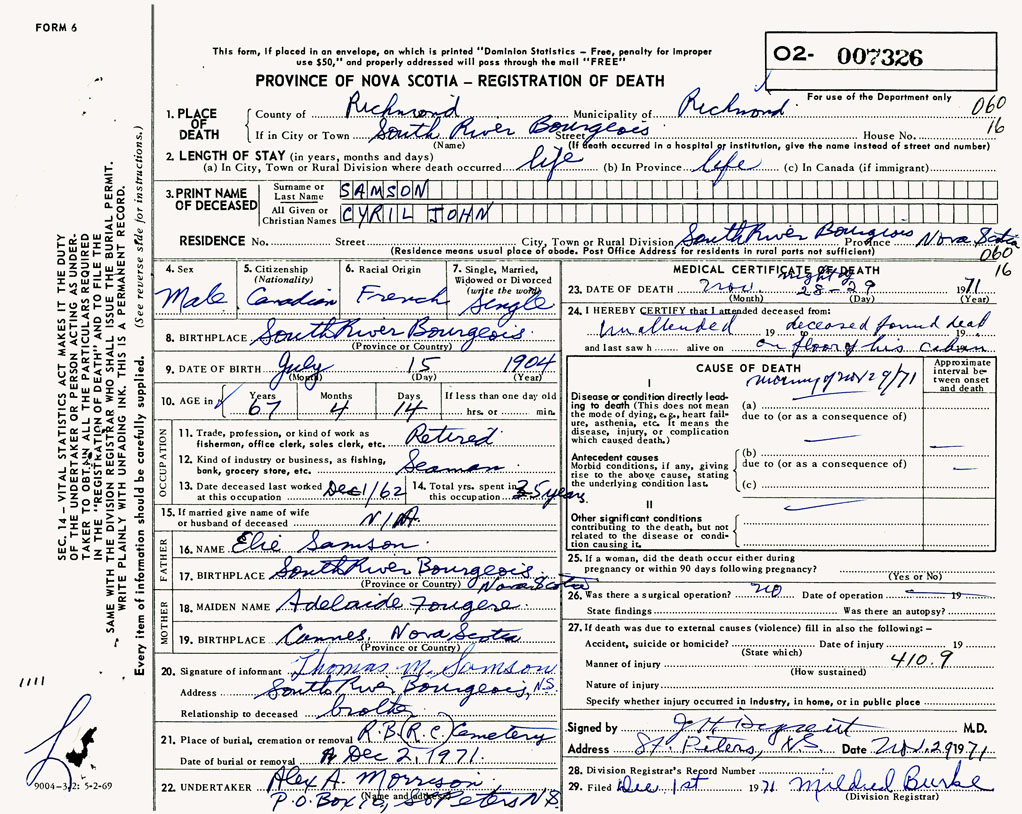 FORM 6
This form, if placed in an envelope, on which is printed "Dominion Statistics – Free, penalty for improper
use $50," and properly addressed will pass through the mail "FREE"
O2- 007326
PROVINCE OF NOVA SCOTIA – REGISTRATION OF DEATH
For use of the Department only
060
16
1. PLACE OF DEATH
County of Richmond Municipality of Richmond
If in City or Town South River Bourgeois Street House No.
(Name) (If death occurred in a hospital or institution, give the name instead of street and number)
2. LENGTH OF STAY (in years, months and days)
(a) In City, Town or Rural Division where death occurred life (b) In Province life (c) In Canada (if immigrant)
3. PRINT NAME OF DECEASED
Surname or Last Name SAMSON
All Given or Christian Names CYRIL JOHN
RESIDENCE No. Street City, Town or Rural Division South River Bourgeois Province Nova Scotia
(Residence means usual place of abode. Post Office Address for residents in rural parts not sufficient)
060
16
4. Sex Male
5. Citizenship (Nationality) Canadian
6. Racial Origin French
7. Single, Married, Widowed or Divorced (write the word) Single
8. BIRTHPLACE South River Bourgeois
(Province or Country)
9. DATE OF BIRTH July 15 1904
(Month) (Day) (Year)
10. AGE in Years 67 Months 4 Days 14 If less than one day old hrs. or min.
OCCUPATION
11. Trade, profession, or kind of work as fisherman, office clerk, sales clerk, etc. Retired
12. Kind of industry or business, as fishing, bank, grocery store, etc. Seaman
13. Date deceased last worked at this occupation Dec 1/62
14. Total yrs. spent in this occupation 35 years
15. If married give name of wife or husband of deceased N/A
FATHER
16. NAME Elie Samson
17. BIRTHPLACE South River Bourgeois Nova Scotia
(Province or Country)
MOTHER
18. MAIDEN NAME Adelaide Fougere
19. BIRTHPLACE Cannes, Nova Scotia
(Province or Country)
20. Signature of informant Thomas M. Samson
Address South River Bourgeois, NS.
Relationship to deceased brother
21. Place of burial, cremation or removal R.B. (R.C.) Cemetery
Date of burial or removal Dec 2, 1971.
22. UNDERTAKER Alex A. Morrison
(Name and address) P.O. Box 75, St Peters N.S.
MEDICAL CERTIFICATE OF DEATH
23. DATE OF DEATH Nov. night of 28-29 1971
(Month) (Day)
24. I HEREBY CERTIFY that I attended deceased from:
Unattended 19 deceased found dead
and last saw h alive on on floor of his cabin
morning of Nov 29/71
CAUSE OF DEATH
Approximate interval between onset and death
I
Disease or condition directly leading to death (This does not mean the mode of dying, e.g., heart failure, asthenia, etc. It means the disease, injury, or complication which caused death.)
(a)
due to (or as a consequence of)
Antecedent causes
Morbid conditions, if any, giving rise to the above cause, stating the underlying condition last.
(b)
due to (or as a consequence of)
(c)
II
Other significant conditions
contributing to the death, but not related to the disease or condition causing it.
25. If a woman, did the death occur either during
pregnancy or within 90 days following pregnancy?
(Yes or No)
26. Was there a surgical operation? no Date of operation 19
State findings Was there an autopsy?
27. If death was due to external causes (violence) fill in also the following: –
Accident, suicide or homicide? Date of injury 19
(State which)
Manner of injury 410.9
(How sustained)
Nature of injury
Specify whether injury occurred in industry, in home, or in public place
Signed by M.D.
Address St. Peters, NS Date Nov. 29 1971
28. Division Registrar's Record Number
29. Filed Dec 1st 1971 Mildred Burke
(Division Registrar)
SEC. 14 – VITAL STATISTICS ACT MAKES IT THE DUTY
OF THE UNDERTAKER OR PERSON ACTING AS UNDER-
TAKER TO OBTAIN ALL THE PARTICULARS REQUIRED
IN THE "REGISTRATION OF DEATH" AND TO FILE THE
SAME WITH THE DIVISION REGISTRAR WHO SHALL ISSUE THE BURIAL PERMIT.
WRITE PLAINLY WITH UNFADING INK. THIS IS A PERMANENT RECORD.
Every item of information should be carefully supplied. (See reverse side for instructions.)
9004-3/2: 5-2-69